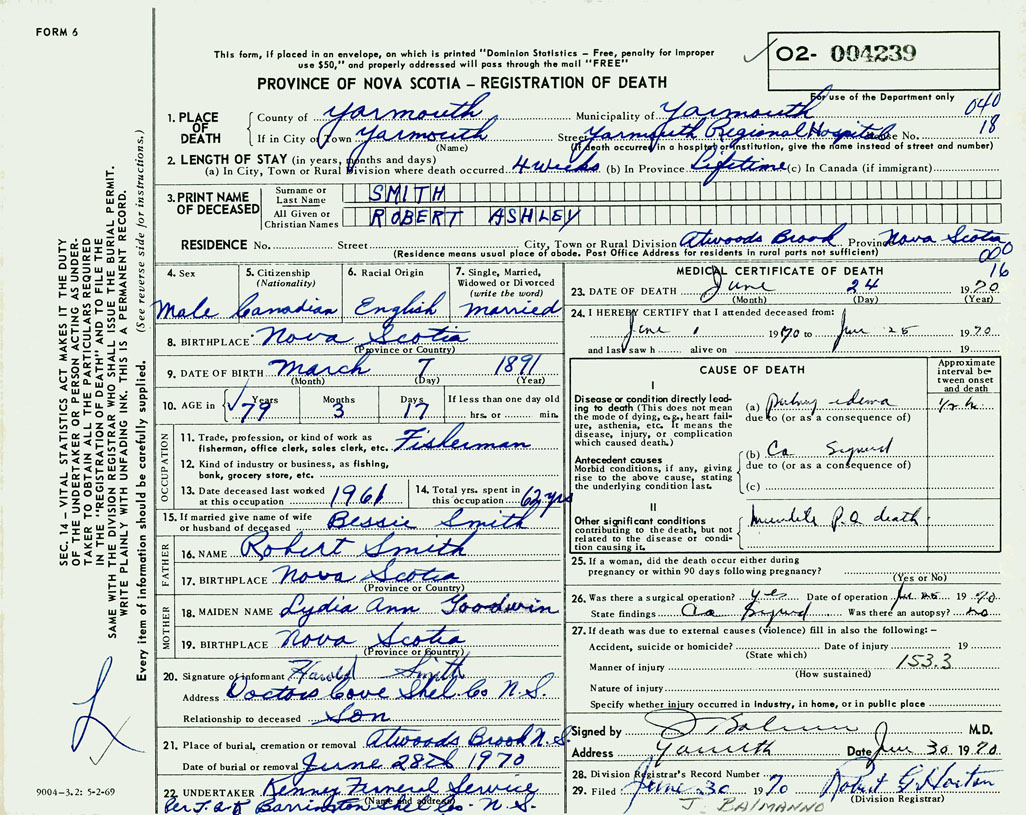 FORM 6
This form, if placed in an envelope, on which is printed "Dominion Statistics – Free, penalty for improper
use $50," and properly addressed will pass through the mail "FREE"
PROVINCE OF NOVA SCOTIA – REGISTRATION OF DEATH
O2- 004239
For use of the Department only
040
18
1. PLACE OF DEATH
County of Yarmouth Municipality of Yarmouth
If in City or Town Yarmouth Street Yarmouth Regional Hospital House No.
(Name) (If death occurred in a hospital or institution, give the name instead of street and number)
2. LENGTH OF STAY (in years, months and days)
(a) In City, Town or Rural Division where death occurred 4 weeks (b) In Province Lifetime (c) In Canada (if immigrant)
3. PRINT NAME OF DECEASED
Surname or Last Name SMITH
All Given or Christian Names ROBERT ASHLEY
RESIDENCE No. Street City, Town or Rural Division Atwoods Brook Province Nova Scotia
(Residence means usual place of abode. Post Office Address for residents in rural parts not sufficient)
000
16
4. Sex Male
5. Citizenship (Nationality) Canadian
6. Racial Origin English
7. Single, Married, Widowed or Divorced (write the word) married
8. BIRTHPLACE Nova Scotia
(Province or Country)
9. DATE OF BIRTH March 7 1891
(Month) (Day) (Year)
10. AGE in Years 79 Months 3 Days 17 If less than one day old
hrs. or min.
OCCUPATION
11. Trade, profession, or kind of work as
fisherman, office clerk, sales clerk, etc. Fisherman
12. Kind of industry or business, as fishing,
bank, grocery store, etc.
13. Date deceased last worked at this occupation 1961
14. Total yrs. spent in this occupation 62 yrs
15. If married give name of wife
or husband of deceased Bessie Smith
FATHER
16. NAME Robert Smith
17. BIRTHPLACE Nova Scotia
(Province or Country)
MOTHER
18. MAIDEN NAME Lydia Ann Goodwin
19. BIRTHPLACE Nova Scotia
(Province or Country)
20. Signature of informant Harold Smith
Address Doctors Cove Shel. Co N.S.
Relationship to deceased Son
21. Place of burial, cremation or removal Atwoods Brook N.S.
Date of burial or removal June 28th 1970
22. UNDERTAKER Kenney Funeral Service
(Name and address)
Barrington Shel. Co. N.S.
MEDICAL CERTIFICATE OF DEATH
23. DATE OF DEATH June 24 1970
(Month) (Day) (Year)
24. I HEREBY CERTIFY that I attended deceased from:
June 1 1970 to June 25 1970
and last saw h alive on 19
CAUSE OF DEATH
Approximate interval between onset and death
I
Disease or condition directly leading to death (This does not mean the mode of dying, e.g., heart failure, asthenia, etc. It means the disease, injury, or complication which caused death.)
(a) edema
due to (or as a consequence of)
Antecedent causes
Morbid conditions, if any, giving rise to the above cause, stating the underlying condition last.
(b) Ca Sigmoid
due to (or as a consequence of)
(c)
II
Other significant conditions contributing to the death, but not related to the disease or condition causing it.
P.O. death
25. If a woman, did the death occur either during
pregnancy or within 90 days following pregnancy?
(Yes or No)
26. Was there a surgical operation? yes Date of operation 1970
State findings Ca Sigmoid Was there an autopsy? no
27. If death was due to external causes (violence) fill in also the following:–
Accident, suicide or homicide? Date of injury 19
(State which)
153.3
Manner of injury
(How sustained)
Nature of injury
Specify whether injury occurred in industry, in home, or in public place
Signed by J Balmanno M.D.
Address Yarmouth Date Jun 30 1970
28. Division Registrar's Record Number 7
29. Filed June 30 1970 Robert G. Horton
(Division Registrar)
J. BALMANNO
SEC. 14 – VITAL STATISTICS ACT MAKES IT THE DUTY
OF THE UNDERTAKER OR PERSON ACTING AS UNDER-
TAKER TO OBTAIN ALL THE PARTICULARS REQUIRED
IN THE "REGISTRATION OF DEATH" AND TO FILE THE
SAME WITH THE DIVISION REGISTRAR WHO SHALL ISSUE THE BURIAL PERMIT.
WRITE PLAINLY WITH UNFADING INK. THIS IS A PERMANENT RECORD.
Every item of information should be carefully supplied. (See reverse side for instructions.)
9004-3.2: 5-2-69